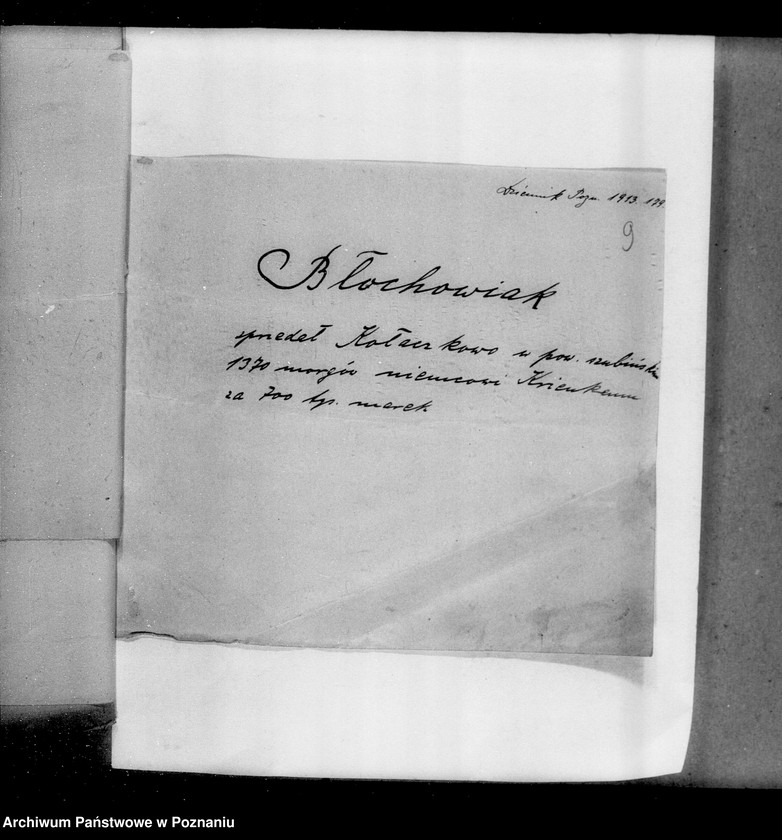 Dziennik Pozn. 1913. 179
9
Błochowiak
sprzedał Kołaczkowo w pow. szubińskim
1370 morgów niemcowi Krienkemu
za 700 tys. marek
Archiwum Państwowe w Poznaniu